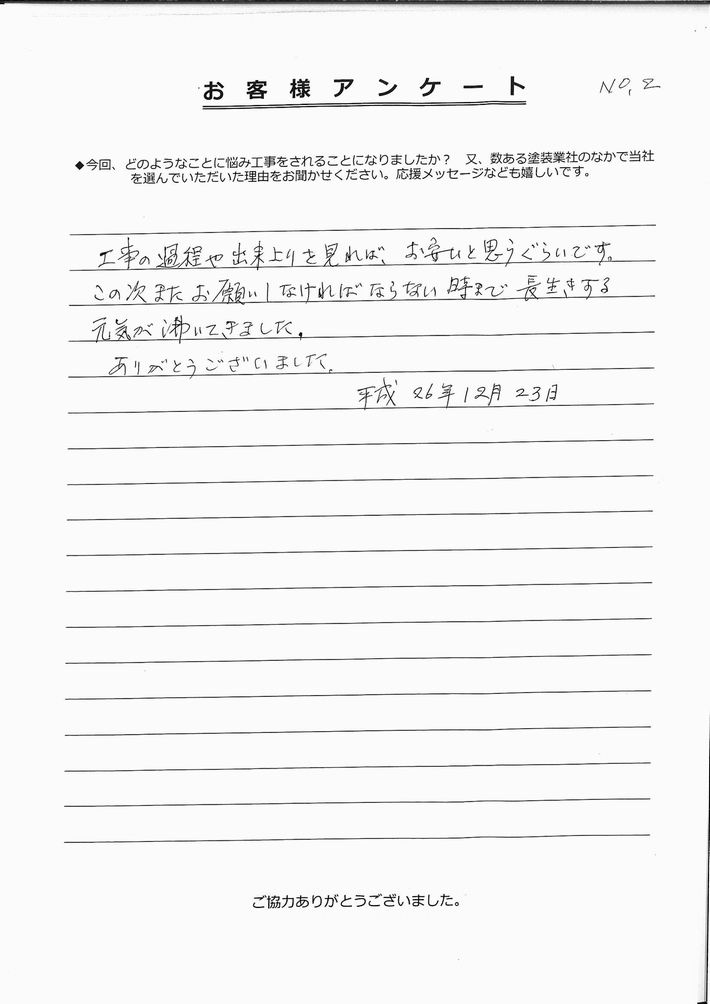 お客様アンケート
NO,2
◆今回、どのようなことに悩み工事をされることになりましたか？　又、数ある塗装業社のなかで当社
を選んでいただいた理由をお聞かせください。応援メッセージなども嬉しいです。
工事の過程や出来上りを見れば、お安いと思うぐらいです。
この次またお願いしなければならない時まで長生きする
元気が沸いてきました。
ありがとうございました。
平成26年12月23日
ご協力ありがとうございました。